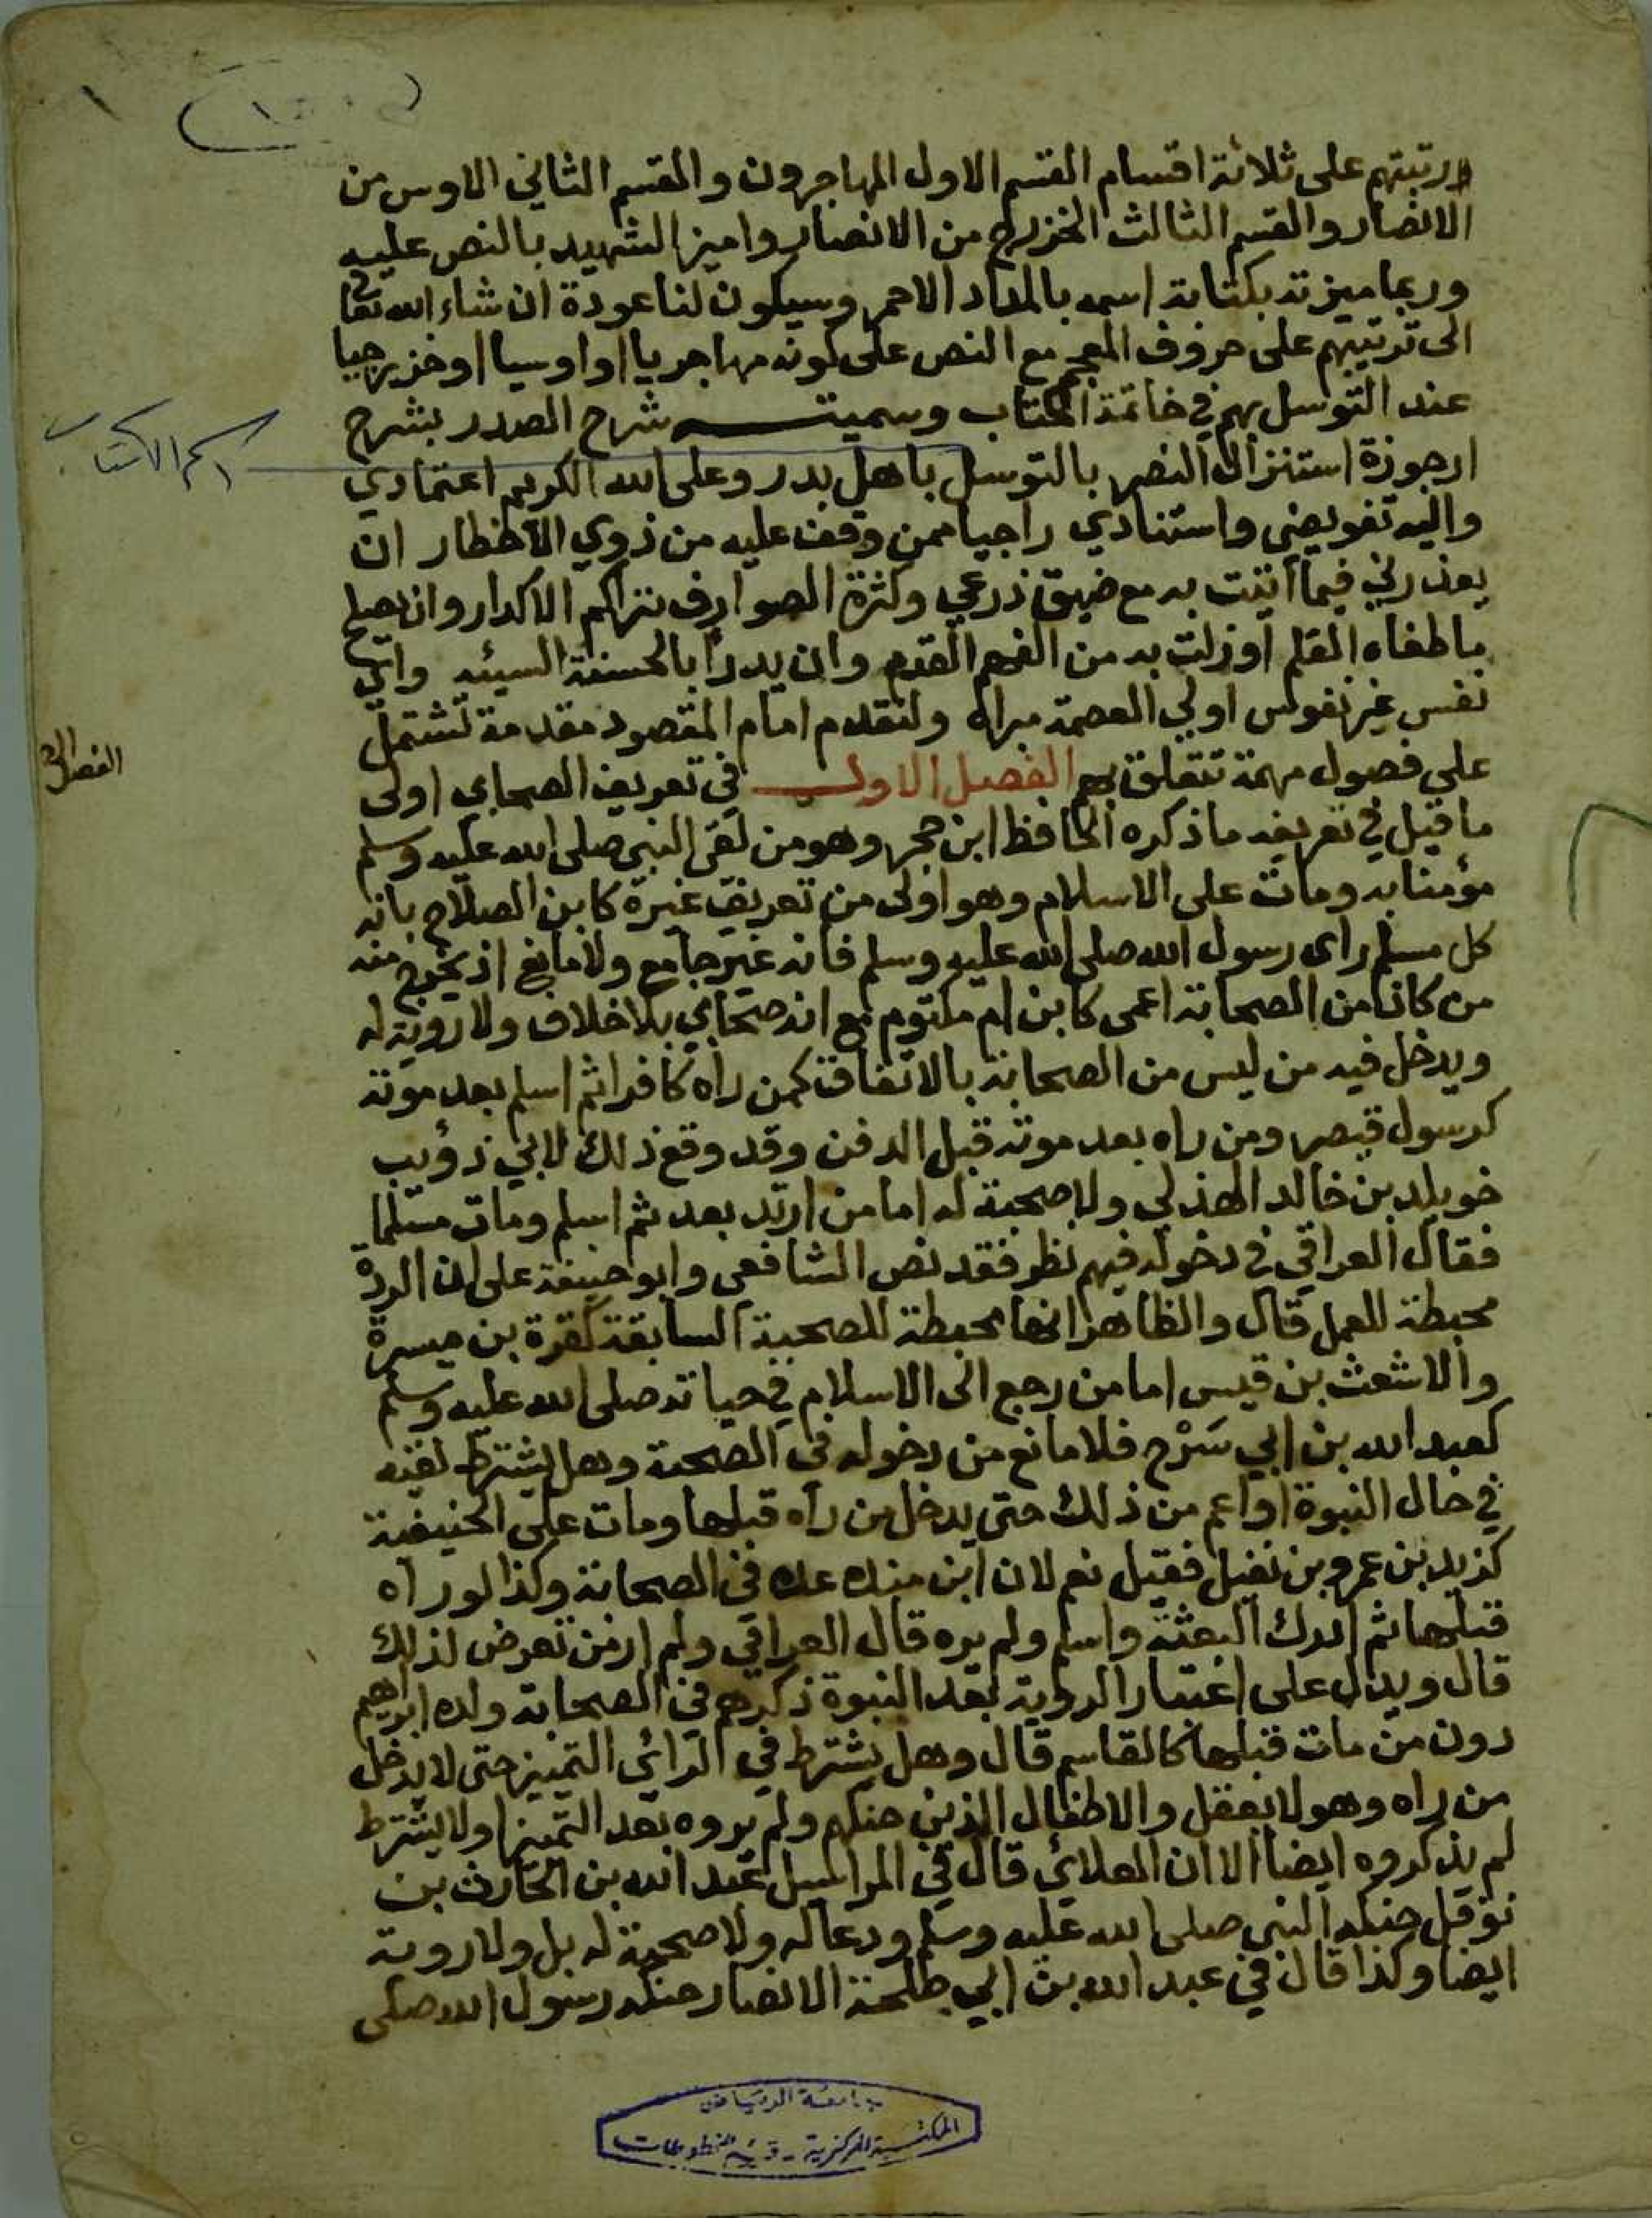 ورتبتهم على ثلاثة اقسام القسم الاول المهاجرون والقسم الثاني الاوس من
الانصار والقسم الثالث الخزرج من الانصار واميز الشهيد بالنص عليه
وربما ميزته بكتابة اسمه بالمداد الاحمر وسيكون لنا عودة ان شاء الله تعا
الى ترتيبهم على حروف المعجم مع النص على كونه مهاجريا او اوسيا او خزرجيا
عند التوسل بهم في خاتمة الكتاب وسميته شرح الصدر بشرح
اسم الكتاب
ارجوزة استنزال النصر بالتوسل باهل بدر وعلى الله الكريم اعتمادي
واليه تفويضي واستنادي راجيا ممن وقف عليه من ذوي الاخطار ان
يعذرني فيما أتيت به مع ضيق ذرعي وكثرة الصوارف بتراكم الاكدار وان يصلح
ما طغاه القلم او زلت به من الفهم القدم وان يدرأ بالحسنة السيئه واي
نفس غير نفوس اولي العصمة مبراه ولنقدم امام المقصود مقدمة تشتمل
على فصول مهمة تتعلق بهم الفصل الاول في تعريف الصحابي اولى
الفصل الاول
ما قيل في تعريفه ما ذكره الحافظ ابن حجر وهو من لقى النبي صلى الله عليه وسلم
مؤمنا به ومات على الاسلام وهو اولى من تعريف غيره كابن الصلاح بانه
كل مسلم راى رسول الله صلى الله عليه وسلم فانه غير جامع ولا مانع اذ يخرج منه
من كان من الصحابة اعمى كابن ام مكتوم مع انه صحابي بلا خلاف ولا روية له
ويدخل فيه من ليس من الصحابة بالاتفاق كمن راه كافرا ثم اسلم بعد موته
كرسول قيصر ومن راه بعد موته قبل الدفن وقد وقع ذلك لابي ذؤيب
خويلد بن خالد الهذلي ولا صحبة له اما من ارتد بعد ثم اسلم ومات مسلما
فقال العراقي في دخوله فيهم نظر فقد نص الشافعي وابو حنيفة على ان الردة
محبطة للعمل قال والظاهر انها محبطة للصحبة السابقة كقرة بن ميسرة
والاشعث بن قيس اما من رجع الى الاسلام في حياته صلى الله عليه وسلم
كعبد الله بن ابي سَرْح فلا مانع من دخوله في الصحبة وهل يشترط لقيه
في حال النبوة او اعم من ذلك حتى يدخل من رآه قبلها ومات على الحنيفية
كزيد بن عمرو بن نفيل فقيل نعم لان ابن منده عده في الصحابة وكذا لو راه
قبلها ثم ادرك البعثة واسلم ولم يره قال العراقي ولم ار من تعرض لذلك
قال ويدل على اعتبار الروية بعد النبوة ذكرهم في الصحابة ولده ابراهيم
دون من مات قبلها كالقاسم قال وهل يشترط في الرائي التمييز حتى لا يدخل
من راه وهو لا يعقل والاطفال الذين حنكهم ولم يروه بعد التمييز او لا يشترط
لم يذكروه ايضا الا ان العلائي قال في المراسيل عبد الله بن الحارث بن
نوفل حنكه النبي صلى الله عليه وسلم ودعا له ولا صحبة له بل ولا روية
ايضا وكذا قال في عبد الله بن ابي طلحة الانصار حنكه رسول الله صلى
جامعة الرياض
المكتبة المركزية - قسم المخطوطات